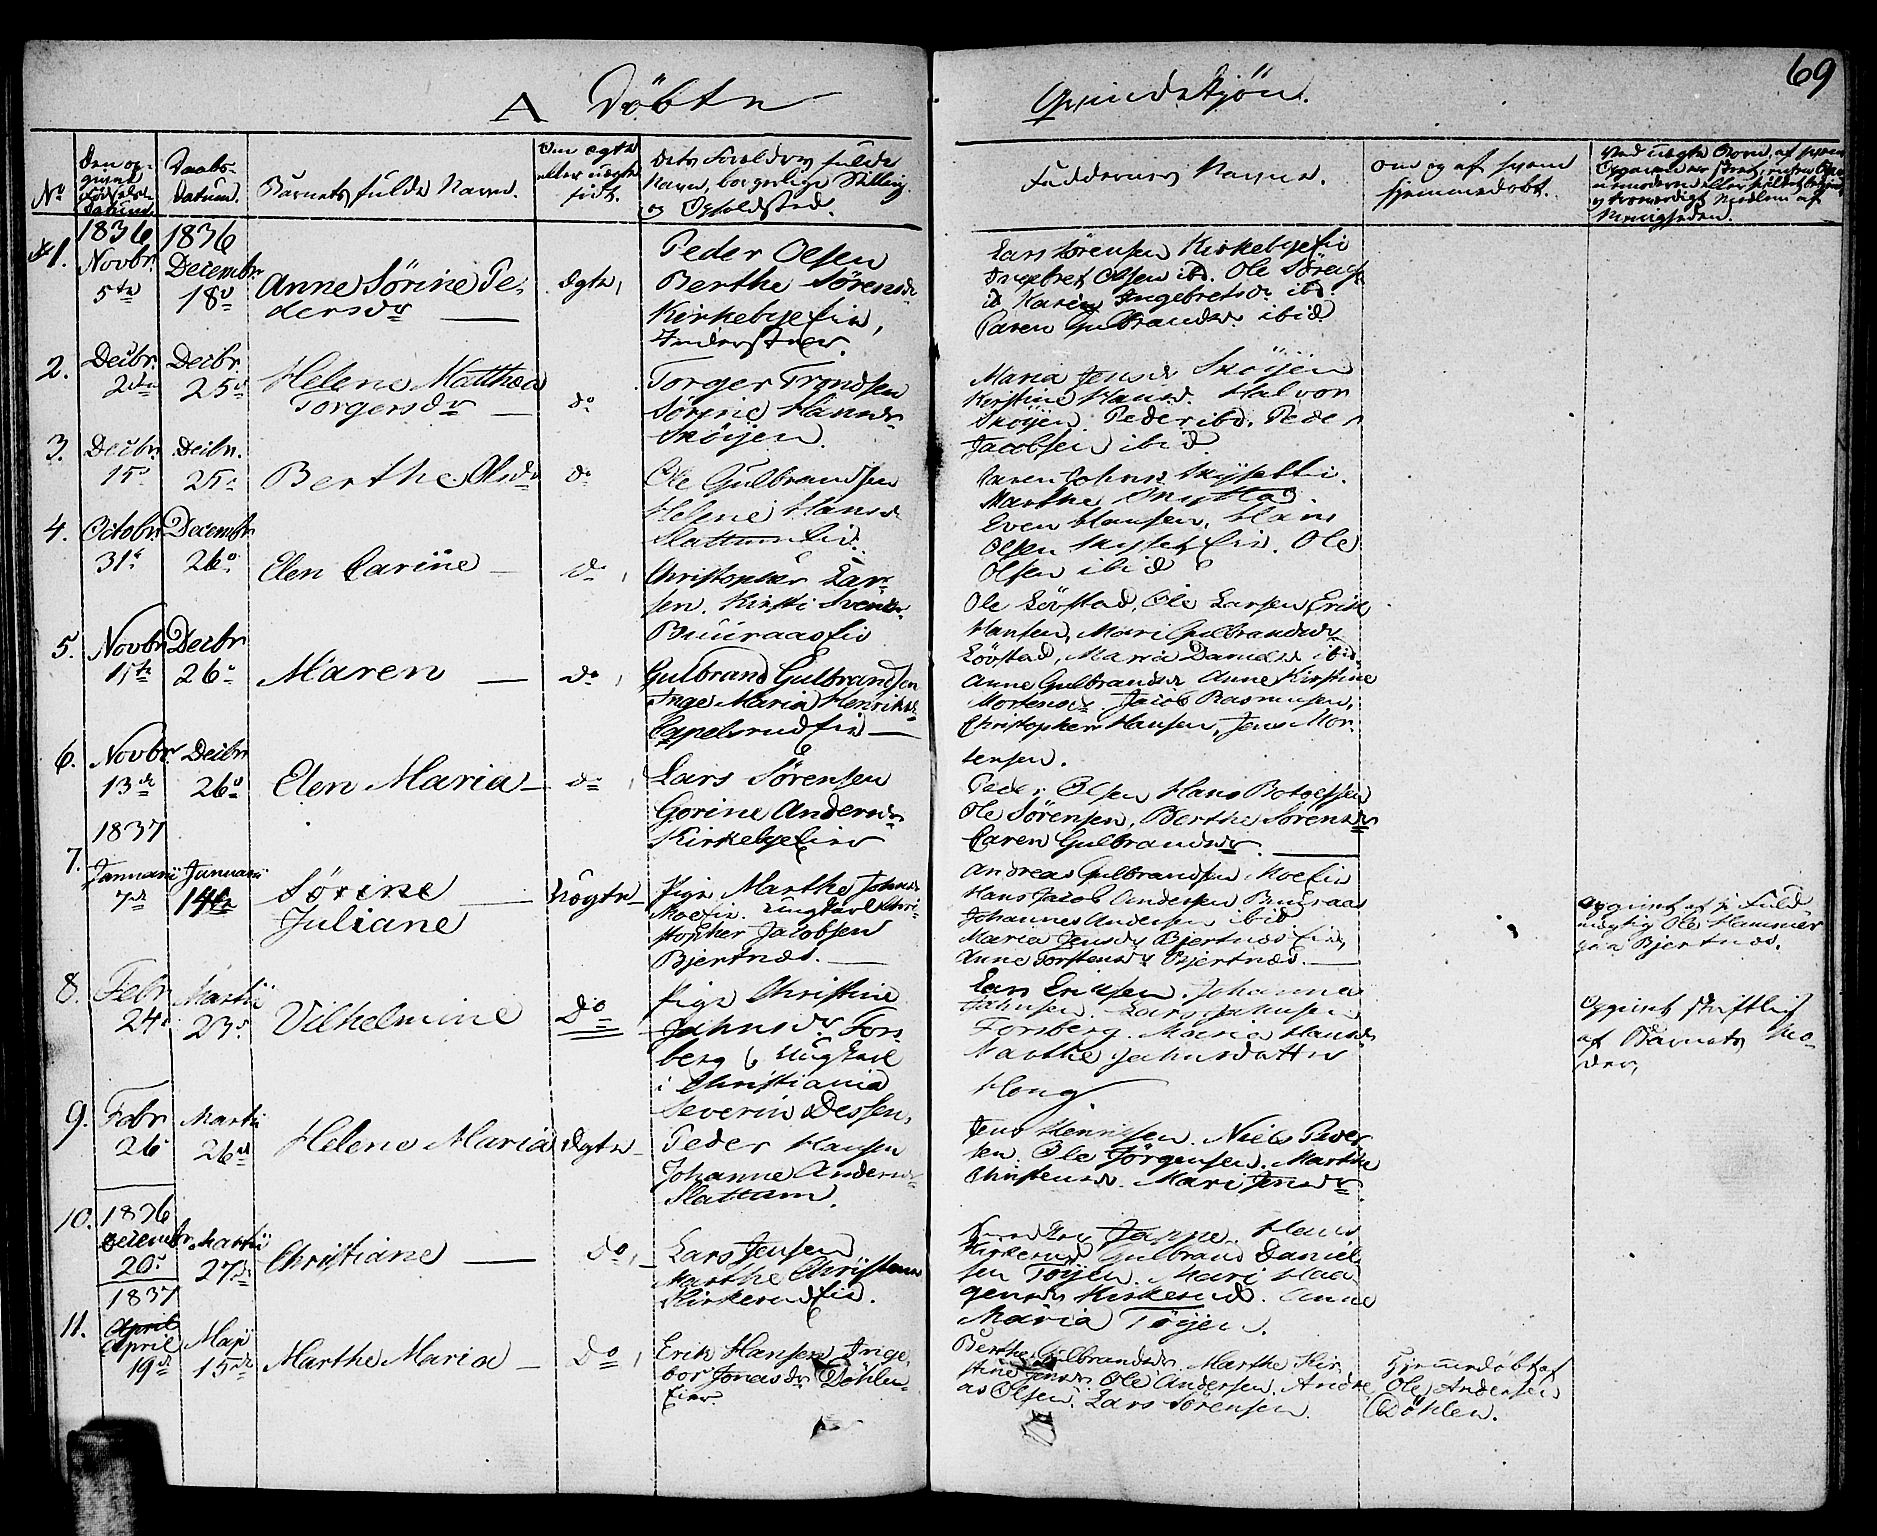 69
A Döbte Qvindekjön.
No
Den opgivne Fødselsdatum.
Daabsdatum.
Barnets fulde Navn.
Om ægte eller uægte født.
Dets Forældres fulde Navn, borgerlige Stilling og Opholdsted.
Faddernes Navne.
Om og af hvem hjemmedøbt.
1.
1836
Novbr.
5te
1836
Decembr.
18de
Anne Sörine Pe-
dersdr
Ægte
Peder Olsen
Berthe Sörensdr
Kirkebyeeie,
Inderstuer.
Lars Sörensen Kirkebyeei
Ingebret Olsen ibd. Ole Sörens
Karin Ingebretsdr ibd.
Paren Gulbrandsdr ibid
2.
Decbr.
Decbr.
25
Helene Matthea
Torgersdr
do
Torger Trondsen
Sörine Hansdr
Sköijen.
Maria Jensdr Sköijen
Kirstine Hansd. Halvor
Sköijen. Peder ibd. Peder
Jacobsen ibid
3.
Decbr.
15
Decbr.
25
Berthe Olsdr
do
Ole Gulbrandsen
Helene Hansdr
Slattumeie.
Maren Johns
Marthe
Even Hansen, Hans
Olsen eie. Ole
Olsen ibid
4.
Octobr.
31
Decembr
26
Elen Carine
do
Christopher Lar-
sen. Kirsti Svendsdr
Buuraaseie
Ole Lövstad, Ole Larsen, Erik
Hansen, Mari Gulbrandsdr
Lövstad, Maria Danielsd ibid.
5.
Novbr
Decbr
26
Maren
do
Gulbrand Gulbrandsen
Inge Maria Henriksdr
Cappelsrudeie
Anne Gulbrandsd Anne Kirstine
Mortensdr. Jacob Rasmusen,
Christopher Hansen, Jens Mor-
tensen.
6.
Novbr.
13de
Decbr
26
Elen Maria
do
Lars Sörensen
Gorine Andersdr
Kirkebyeeie
Peder Olsen Hans Botgersen
Ole Sörensen, Berthe Sörensdr
Caren Gulbrandsdr
1837
7.
Januarii
7de
Januarii
14de
Sörine
Juliane
Uægte
Pige Marthe Johnsd
Moeeie. Ungkarl Chri-
stopher Jacobsen
Bjertnæs.
Andreas Gulbrandsen Moeeie
Hans Jacob Andersen Buuraas
Johannes Andersen ibid
Maria Jensdr Bjertnæseie,
Anne Torstensdr Bjertnæs.
Opgivet af Fuld-
mægtig Ole Hammer
paa Bjertnæs.
8.
Febr
24
Martii
23
Vilhelmine
Do
Pige Christine
Jahnsdr Fors-
berg, Ungkarl
i Christiania
Severin Dessen,
Lars Eriksen. Johanna
Jahnsen. Lars Jahnsen
Forsberg. Maria Hansdr
Marthe Jahnsdatter
Houg
Opgivet skriftlig
af Barnets Mo-
der,
9.
Febr
26
Martii
26de
Helene Maria
Ægte
Peder Hansen
Johanne Andersdr
Slattum.
Jens Henriksen. Niels Peder-
sen. Ole Jörgensen. Marthe
Christensd. Mari Jensdr
10.
1836
Decembr.
20
Martii
27de
Christiane
Do
Lars Jensen
Marthe Christensdr
Kirkerudeie.
Janne. Hans
Kirkerud Gulbrand Daniel-
sen Töijen. Mari Haa-
gensdr Kirkerud. Anne
Maria Töijen.
1837
11.
April
April
19de
Maji
15de
Marthe Maria
Do
Erik Hansen Inge-
bor Jonasdr Döhlen-
eier
Berthe Gulbrandsdr. Marthe Kir-
stine Jensdr Ole Andersen. Andre-
as Olsen. Lars Sörensen.
Hjemmedöbt af
Ole Andersen
Döhlen.